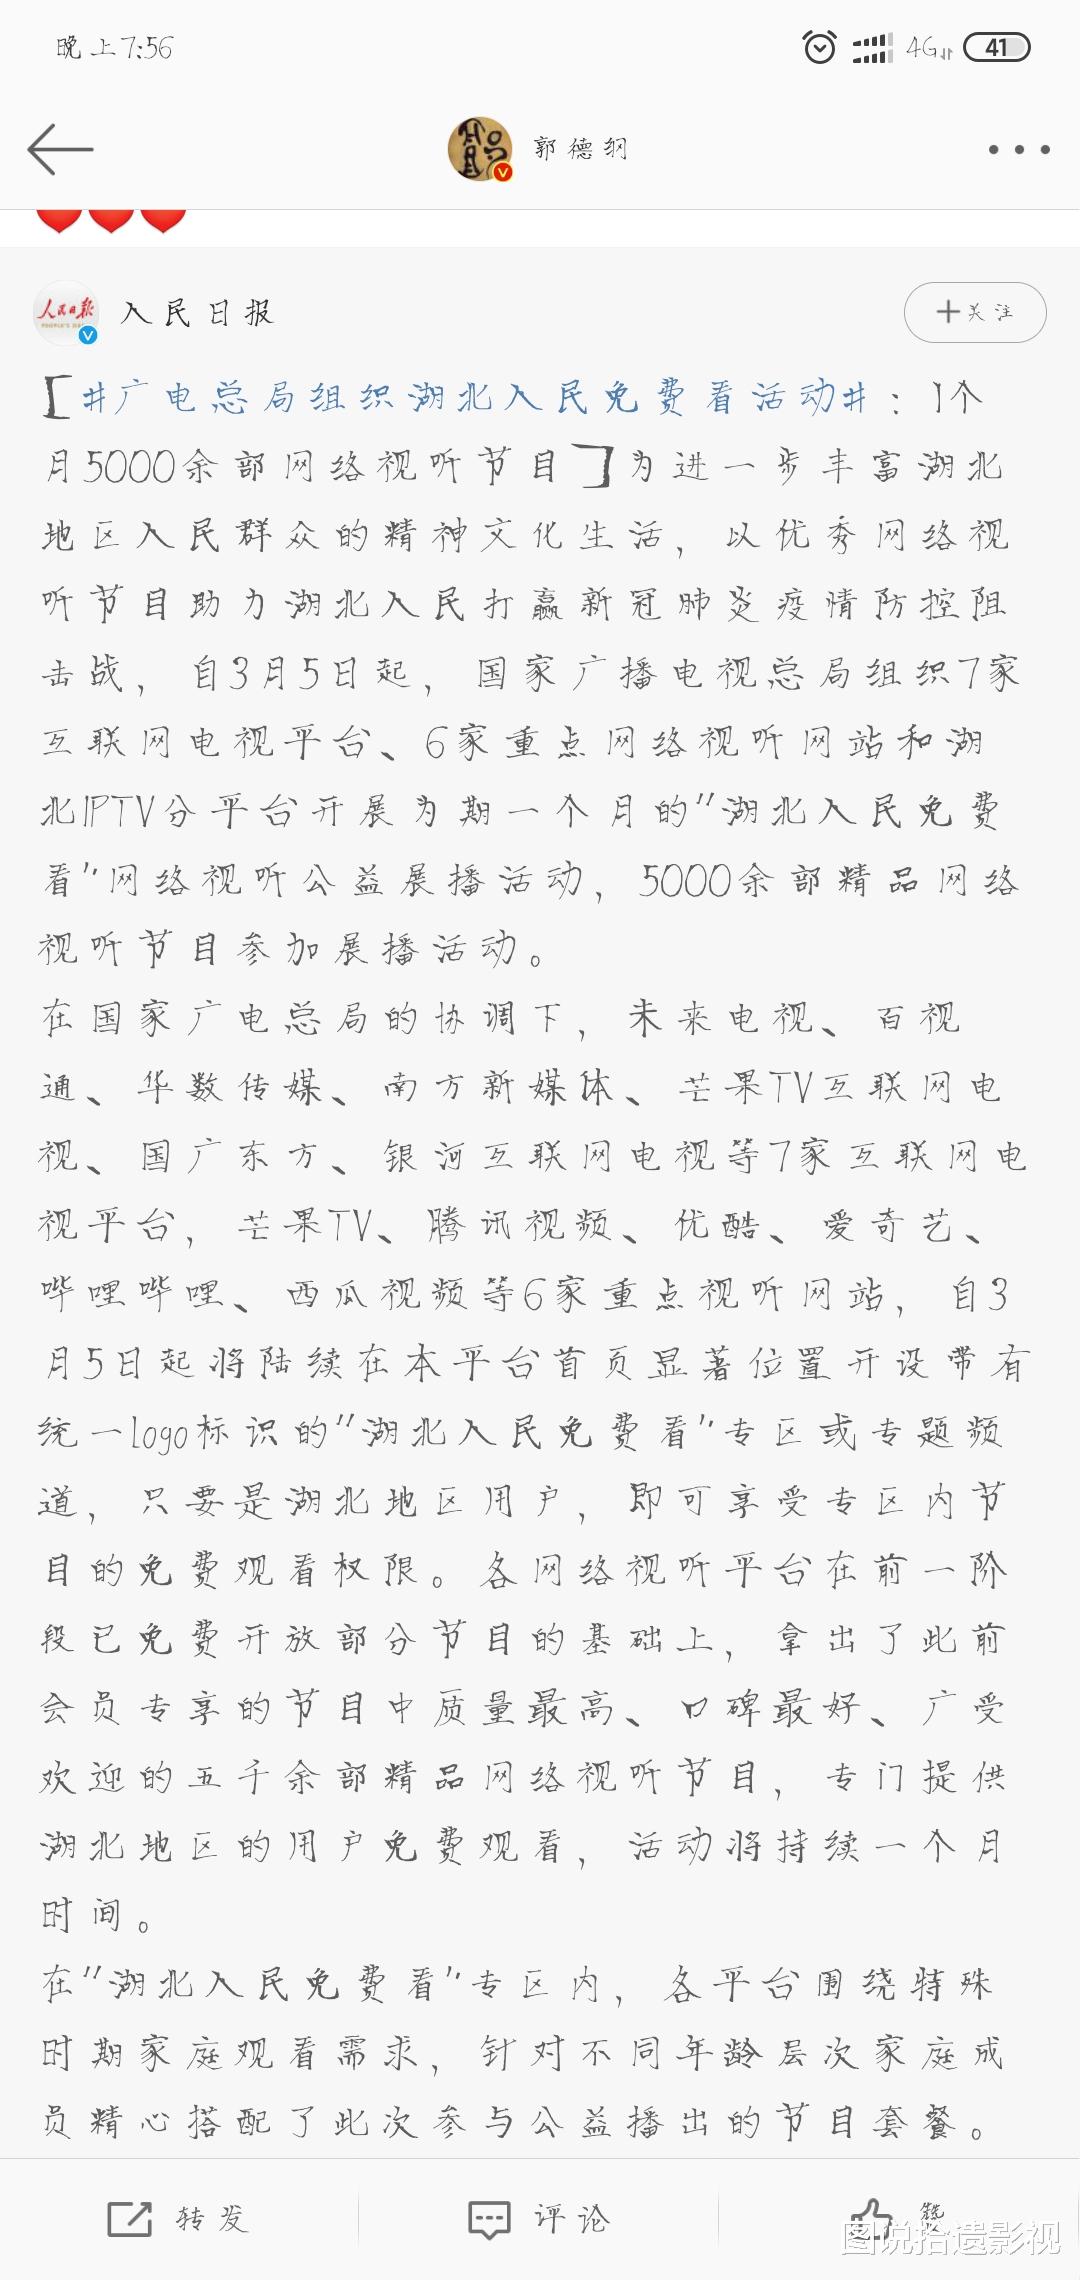 晚上7:56
4G
41
郭德纲
人民日报
人民日报
关注
【#广电总局组织湖北人民免费看活动#：1个
月5000余部网络视听节目】为进一步丰富湖北
地区人民群众的精神文化生活，以优秀网络视
听节目助力湖北人民打赢新冠肺炎疫情防控阻
击战，自3月5日起，国家广播电视总局组织7家
互联网电视平台、6家重点网络视听网站和湖
北IPTV分平台开展为期一个月的"湖北人民免费
看"网络视听公益展播活动，5000余部精品网络
视听节目参加展播活动。
在国家广电总局的协调下，未来电视、百视
通、华数传媒、南方新媒体、芒果TV互联网电
视、国广东方、银河互联网电视等7家互联网电
视平台，芒果TV、腾讯视频、优酷、爱奇艺、
哔哩哔哩、西瓜视频等6家重点视听网站，自3
月5日起将陆续在本平台首页显著位置开设带有
统一logo标识的"湖北人民免费看"专区或专题频
道，只要是湖北地区用户，即可享受专区内节
目的免费观看权限。各网络视听平台在前一阶
段已免费开放部分节目的基础上，拿出了此前
会员专享的节目中质量最高、口碑最好、广受
欢迎的五千余部精品网络视听节目，专门提供
湖北地区的用户免费观看，活动将持续一个月
时间。
在"湖北人民免费看"专区内，各平台围绕特殊
时期家庭观看需求，针对不同年龄层次家庭成
员精心搭配了此次参与公益播出的节目套餐。
转发
评论
图说拾遗影视